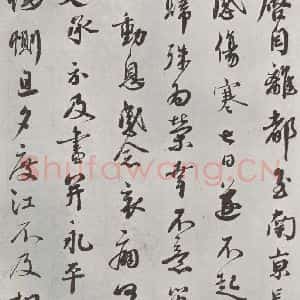 啓自離都至南京長
感傷寒七日遂不起
歸殊為榮幸不意災
動息歎念哀痛
又承示及書并永平
惻旦夕度江不及
Shufawang.CN